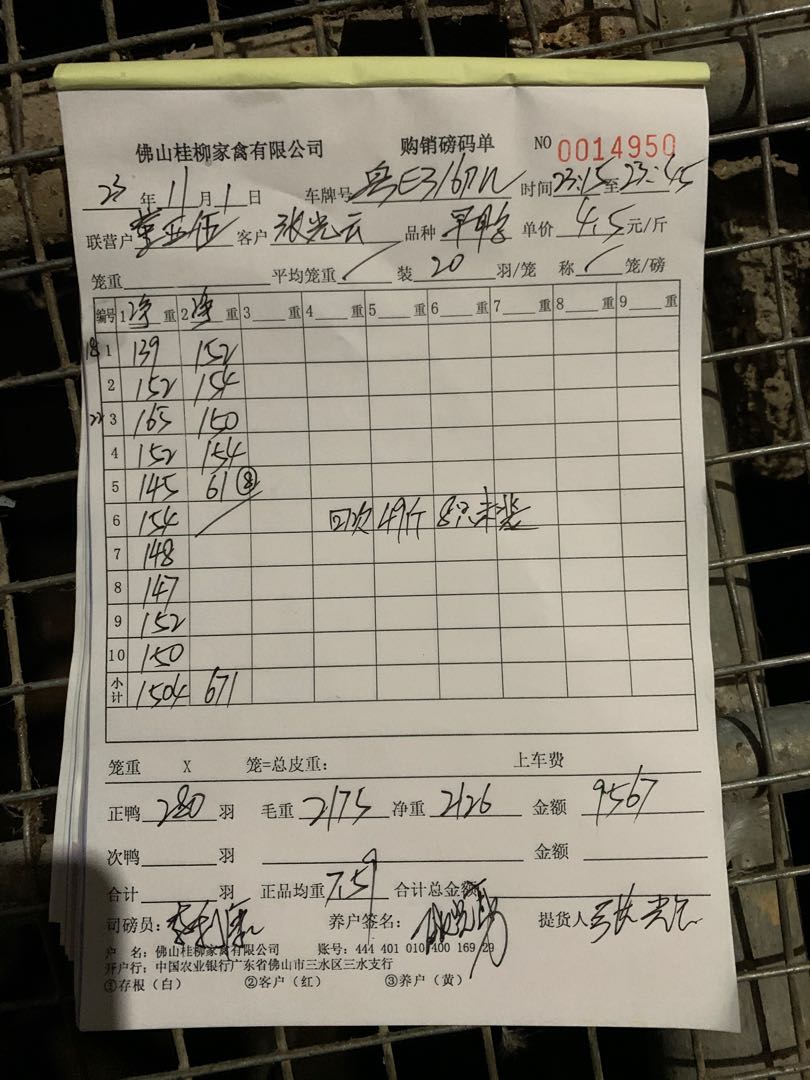 佛山桂柳家禽有限公司 购销磅码单 NO 0014950
23 年 11 月 1 日 车牌号 粤E 时间 23:15 至 23:45
联营户 客户 张光云 品种 单价 4.5 元/斤
笼重 平均笼重 / 装 20 羽/笼 称 / 笼/磅
编号 1 净 重 2 净 重 3 重 4 重 5 重 6 重 7 重 8 重 9 重
18 1 139 152
2 152 154
22 3 165 150
4 152 154
5 145 61 ⑧
6 154 / 回次 49斤 8只未装
7 148
8 147
9 152
10 150
小计 1504 671
笼重 X 笼=总皮重: 上车费
正鸭 280 羽 毛重 2175 净重 2126 金额 9567
次鸭 羽 金额
合计 羽 正品均重 7.59 合计总金额
司磅员: 养户签名: 提货人 张光云
户 名: 佛山桂柳家禽有限公司 账号: 444 401 010 400 169 29
开户行: 中国农业银行广东省佛山市三水区三水支行
①存根(白) ②客户(红) ③养户(黄)